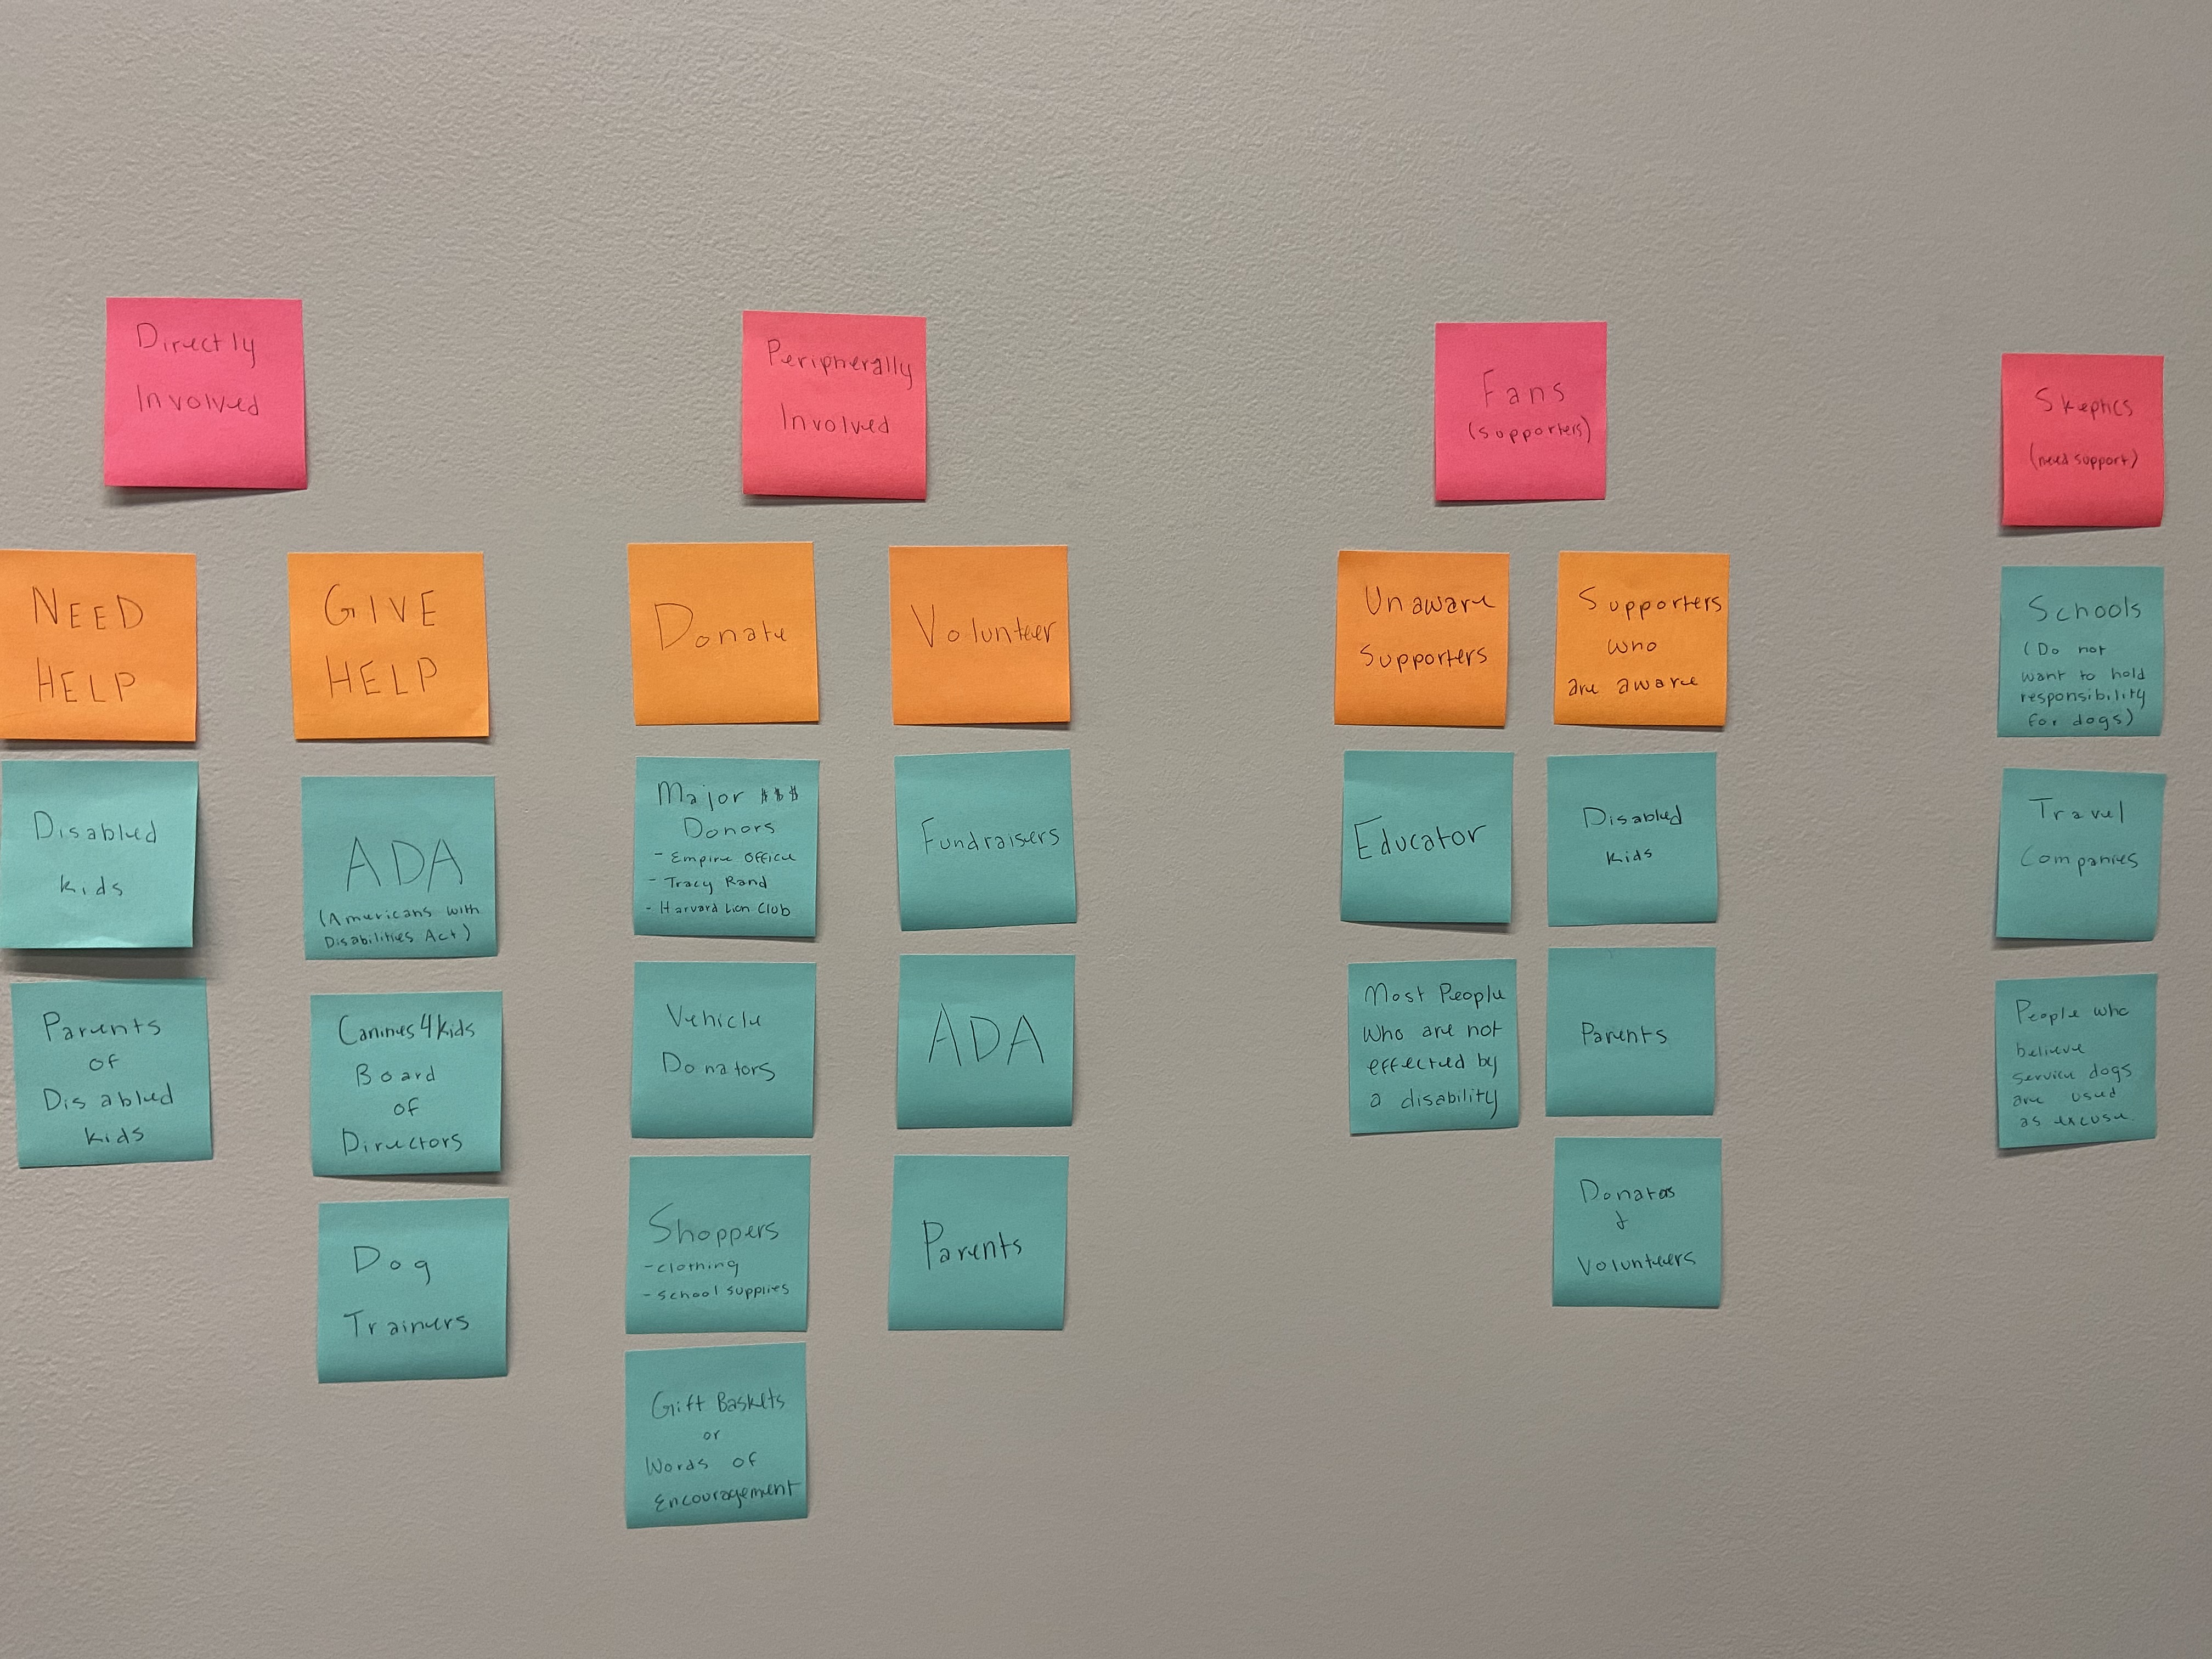 Directly
Involved
NEED
HELP
Disabled
kids
Parents
of
Disabled
kids
GIVE
HELP
ADA
(Americans with
Disabilities Act)
Canines4kids
Board
of
Directors
Dog
Trainers
Peripherally
Involved
Donate
Major $$$
Donors
- Empire Office
- Tracy Rand
- Harvard Lion Club
Vehicle
Donators
Shoppers
- clothing
- School supplies
Gift Baskets
or
Words of
Encouragement
Volunteer
Fundraisers
ADA
Parents
Fans
(supporters)
Unaware
Supporters
Educator
Most People
Who are not
effected by
a disability
Supporters
who
are aware
Disabled
kids
Parents
Donators
&
Volunteers
Skeptics
(need support)
Schools
(Do not
want to hold
responsibility
for dogs)
Travel
Companies
People who
believe
service dogs
are used
as excuse.